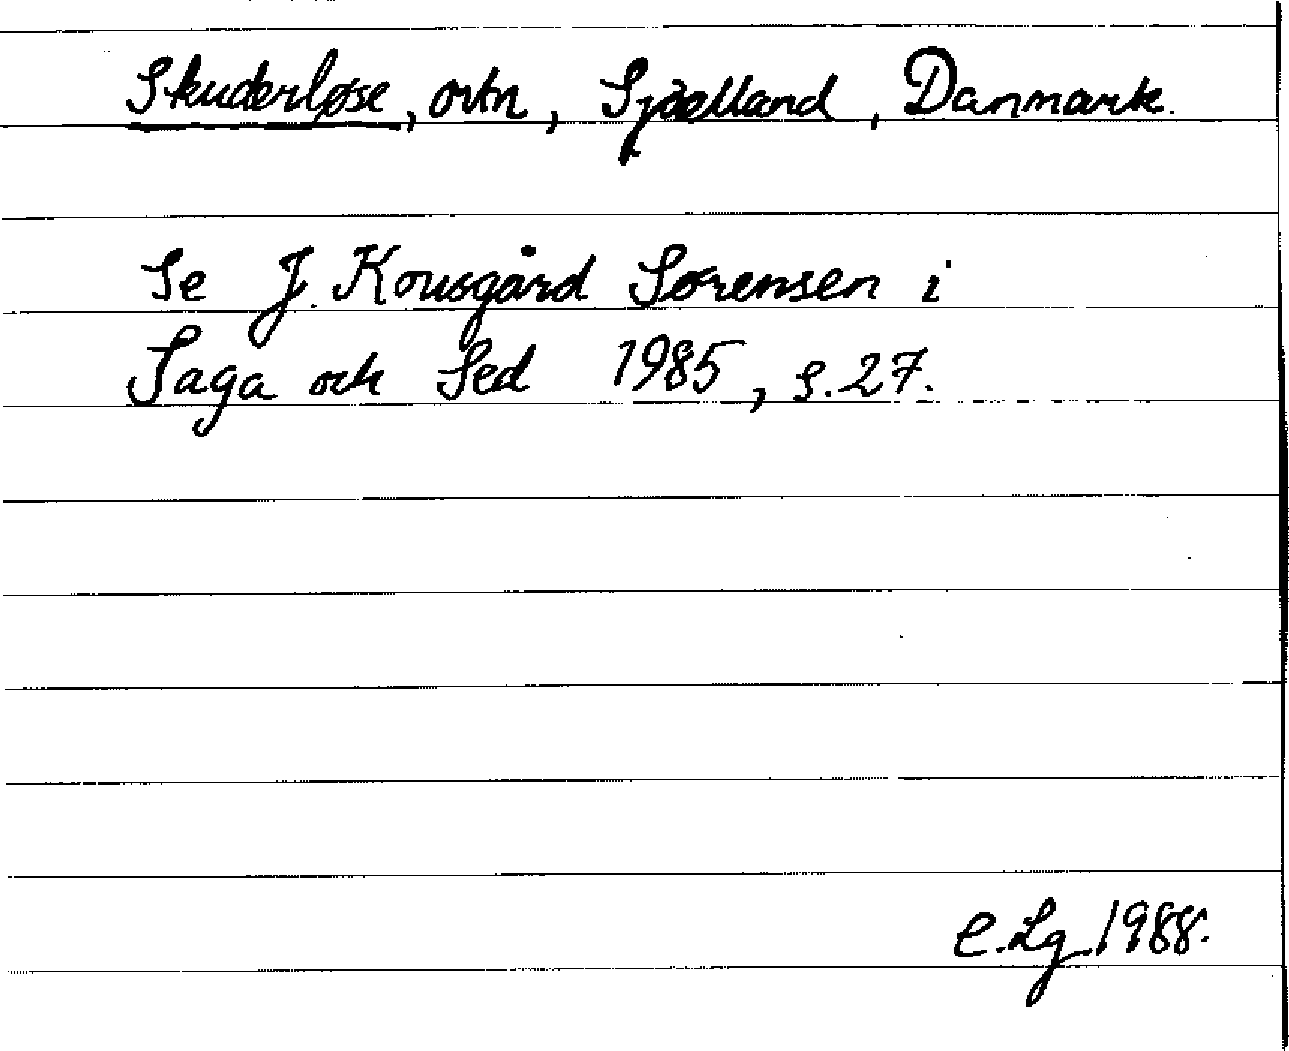 Skuderløse, ortn, Sjælland, Danmark.
Se J. Kousgård Sørensen i
Saga och Sed 1985, s. 27.
C. Lg 1988.